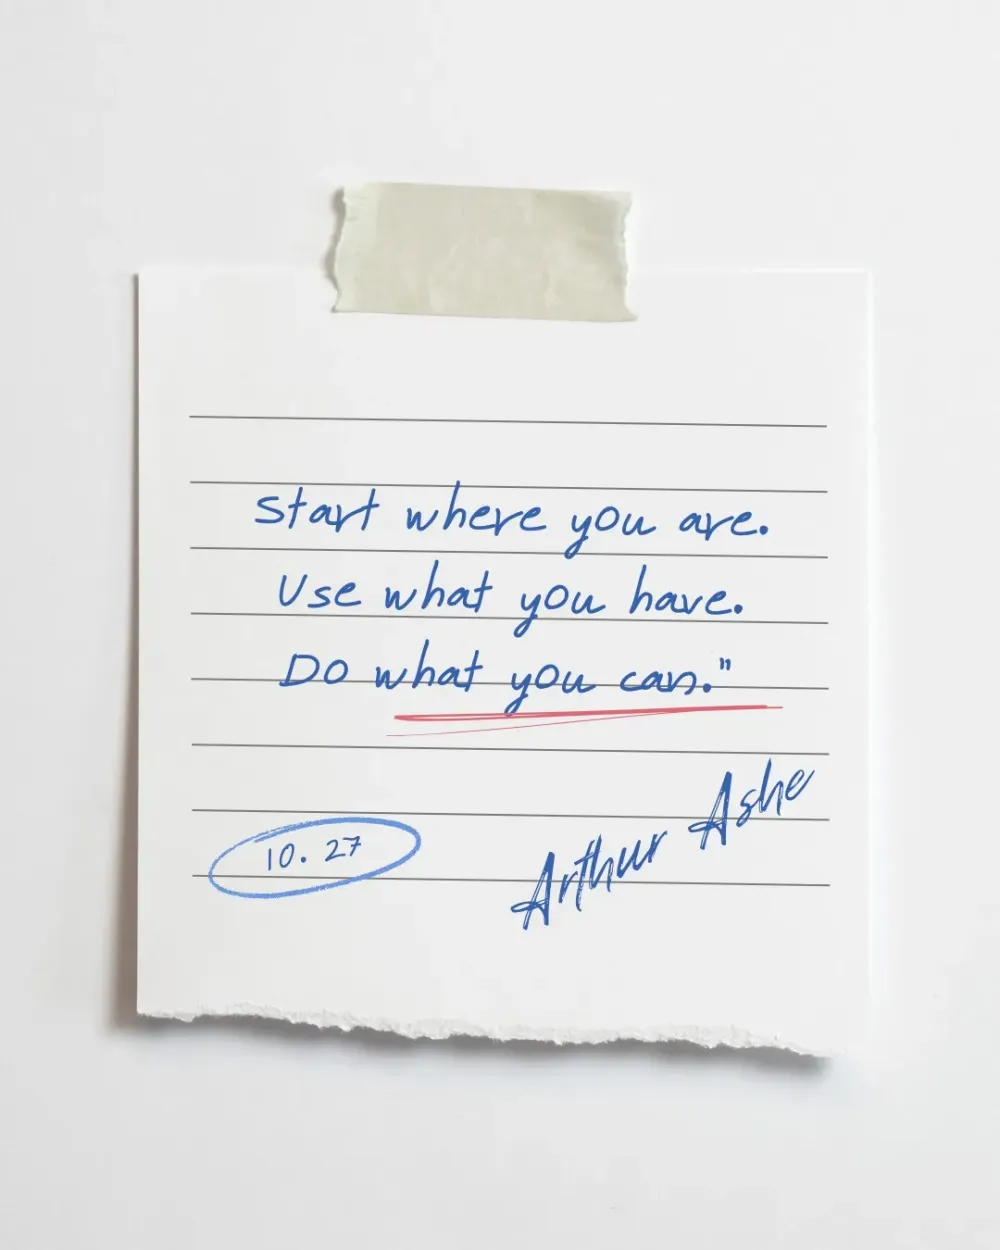 Start where you are.
Use what you have.
Do what you can."
Arthur Ashe
10. 27